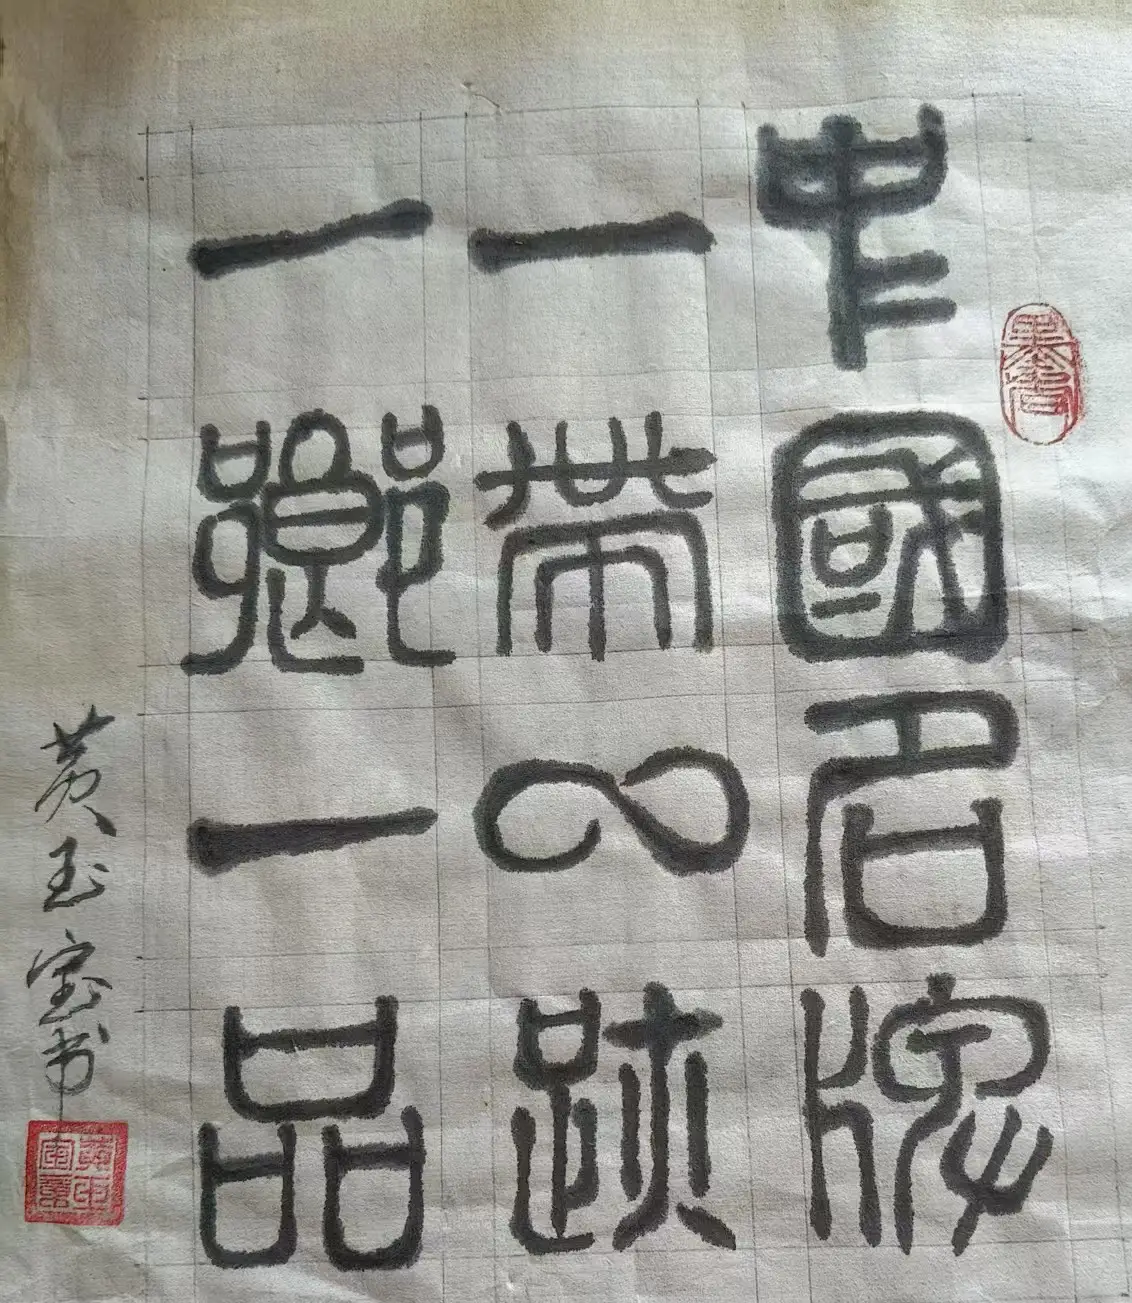 中國名牌
一帶∞跡
一鄉一品
黄玉宝书